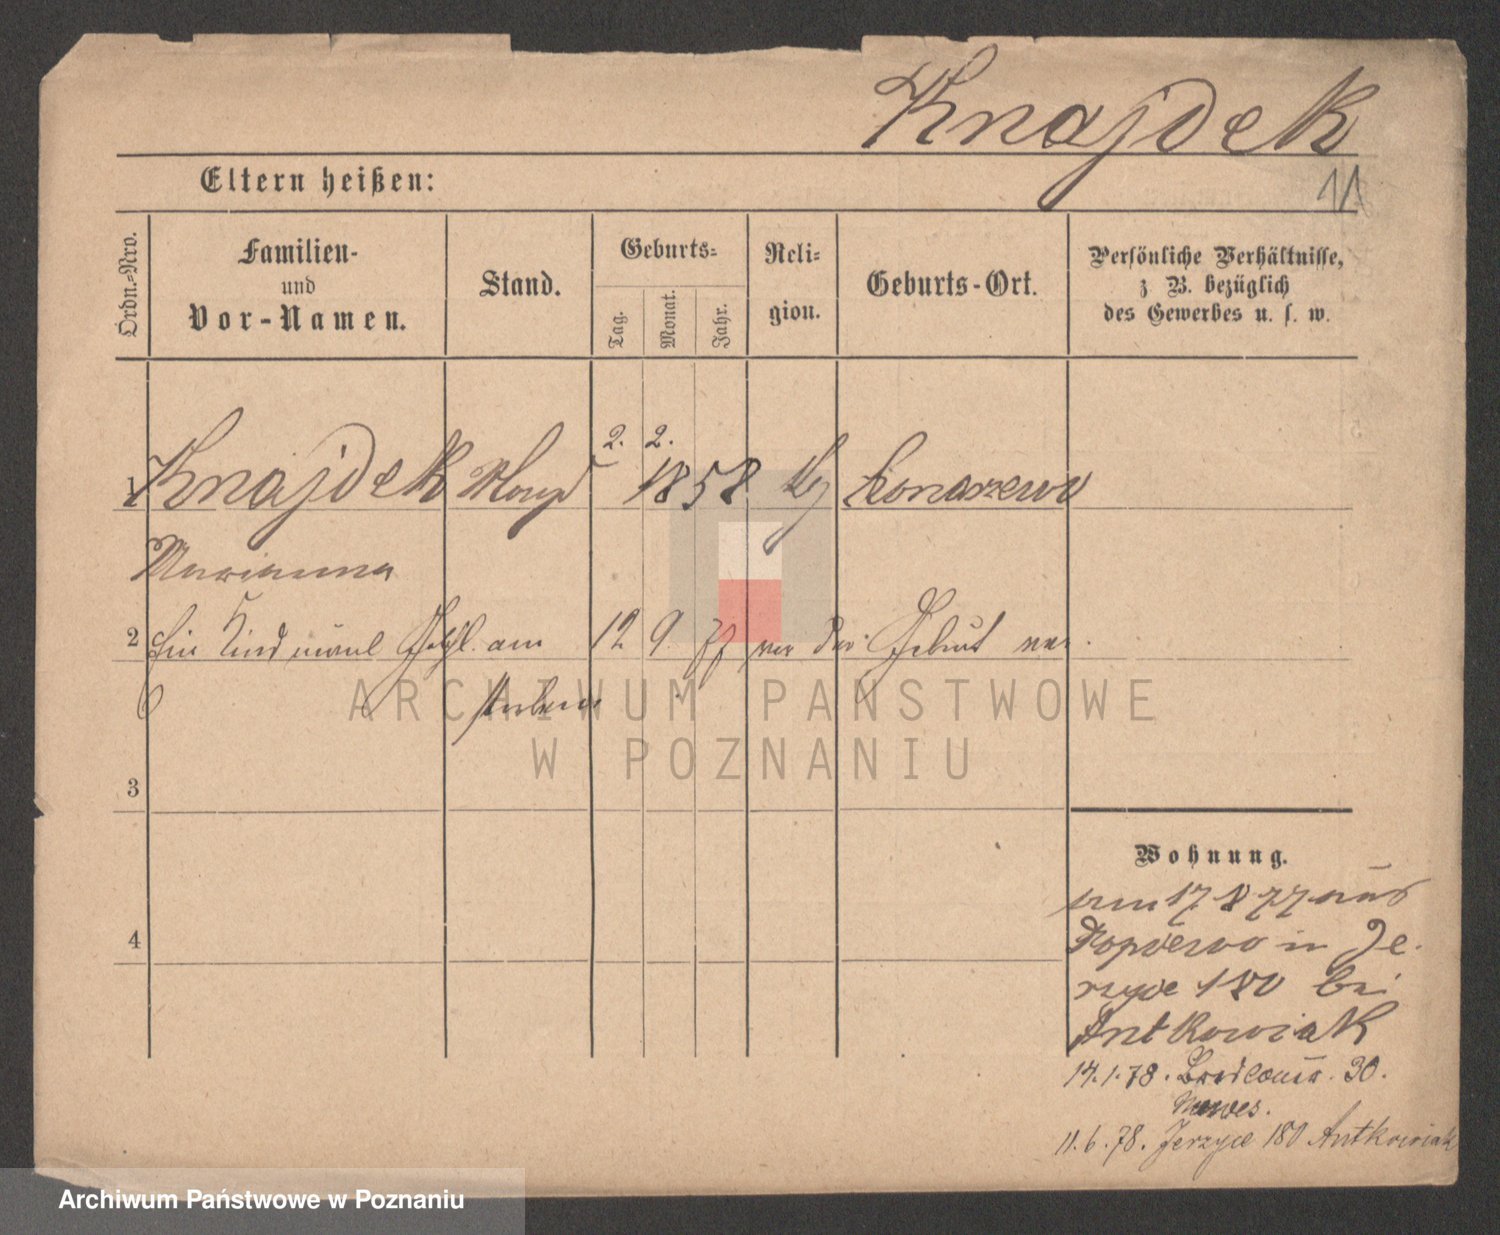 Knajdek
11
Eltern heißen:
Ordn.-Nro.
Familien-
und
Vor-Namen.
Stand.
Geburts-
Tag.
Monat.
Jahr.
Reli-
gion.
Geburts-Ort.
Persönliche Verhältnisse,
z. B. bezüglich
des Gewerbes u. s. w.
2. 2.
1 Knajdek Magd 1858 Conarzewo
Marianna
2 Ein Kind männl. Geschl. am 12 9 77 vor der Geburt ver-
storben
3
4
Wohnung.
am 17 8 77 aus
Dopiewo in Je-
rzyce 180 bei
Antkowiak
14.1.78. 30.
11.6.78. Jerzyce 180 Antkowiak
ARCHIWUM PAŃSTWOWE
W POZNANIU
Archiwum Państwowe w Poznaniu